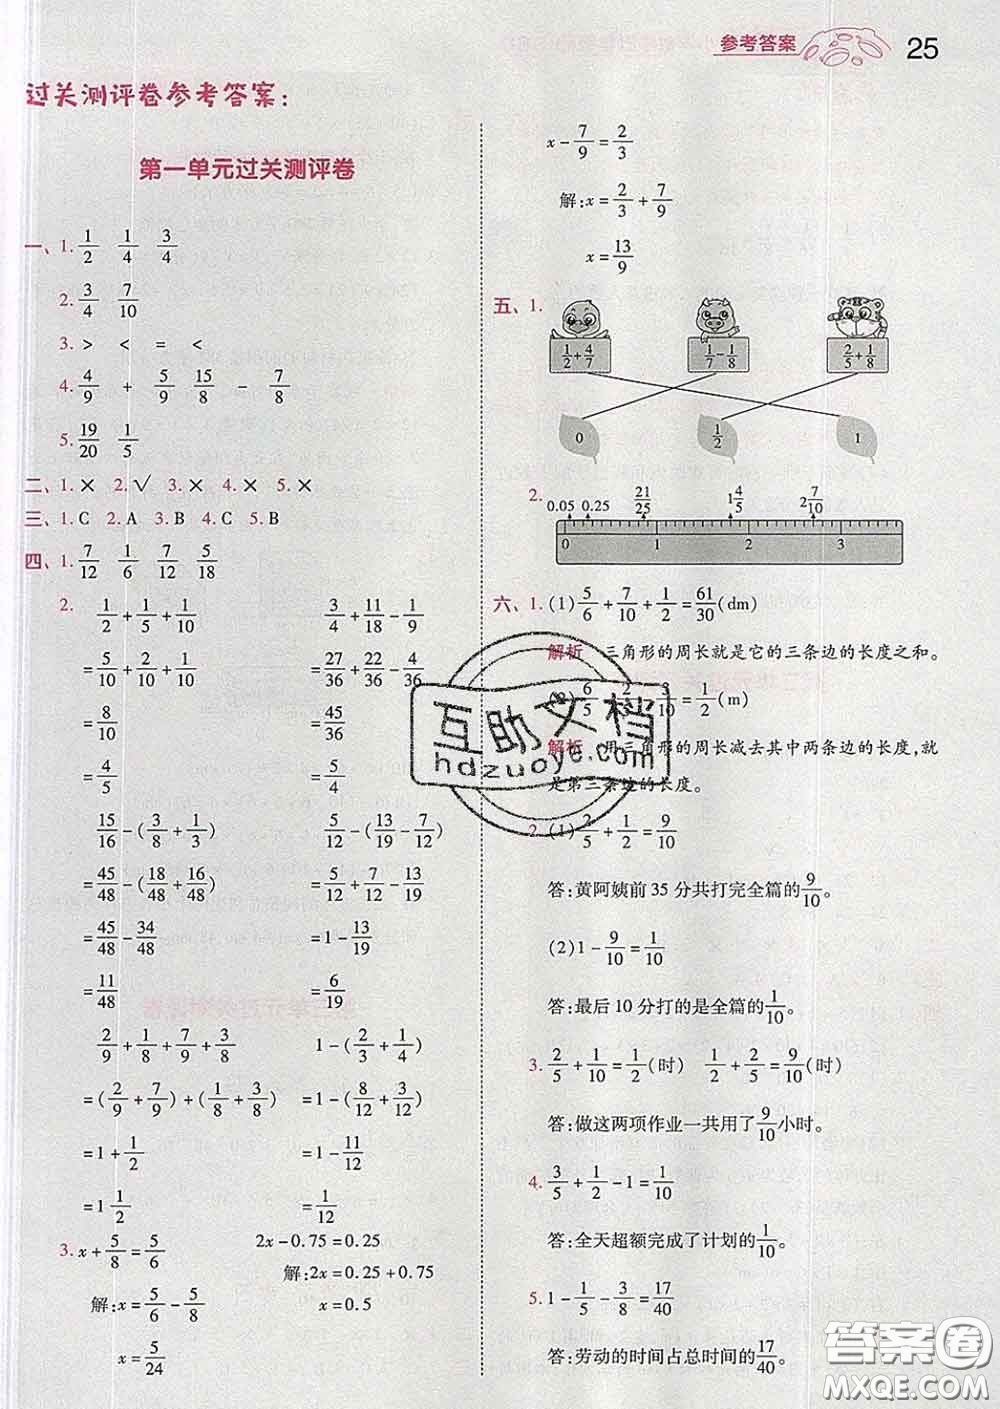 参考答案 25
过关测评卷参考答案:
第一单元过关测评卷
一、1. 1/2 1/4 3/4
2. 3/4 7/10
3. > < = <
4. 4/9 + 5/9 15/8 - 7/8
5. 19/20 1/5
二、1. × 2. √ 3. × 4. × 5. ×
三、1. C 2. A 3. B 4. C 5. B
四、1. 7/12 1/6 7/12 5/18
2. 1/2+1/5+1/10
=5/10+2/10+1/10
=8/10
=4/5
3/4+11/18-1/9
=27/36+22/36-4/36
=45/36
=5/4
15/16-(3/8+1/3)
=45/48-(18/48+16/48)
=45/48-34/48
=11/48
5/12-(13/19-7/12)
=5/12+7/12-13/19
=1-13/19
=6/19
2/9+1/8+7/9+3/8
=(2/9+7/9)+(1/8+3/8)
=1+1/2
=1 1/2
1-(2/3+1/4)
=1-(8/12+3/12)
=1-11/12
=1/12
3. x+5/8=5/6
解:x=5/6-5/8
x=5/24
2x-0.75=0.25
解:2x=0.25+0.75
x=0.5
x-7/9=2/3
解:x=2/3+7/9
x=13/9
五、1.
1/2+4/7 1/7-1/8 2/5+1/8
0 1/2 1
2. 0.05 0.25 21/25 1 4/5 2 7/10
0 1 2 3
六、1. (1)5/6+7/10+1/2=61/30(dm)
解析 三角形的周长就是它的三条边的长度之和。
6/5 2/5 /10=1/2(m)
解析 用三角形的周长减去其中两条边的长度,就
是第三条边的长度。
2. (1)2/5+1/2=9/10
答:黄阿姨前 35 分共打完全篇的9/10。
(2)1-9/10=1/10
答:最后 10 分打的是全篇的1/10。
3. 2/5+1/10=1/2(时) 1/2+2/5=9/10(时)
答:做这两项作业一共用了9/10小时。
4. 3/5+1/2-1=1/10
答:全天超额完成了计划的1/10。
5. 1-1/5-3/8=17/40
答:劳动的时间占总时间的17/40。
互助文档
hdzuoye.com
答案圈
MXQE.COM